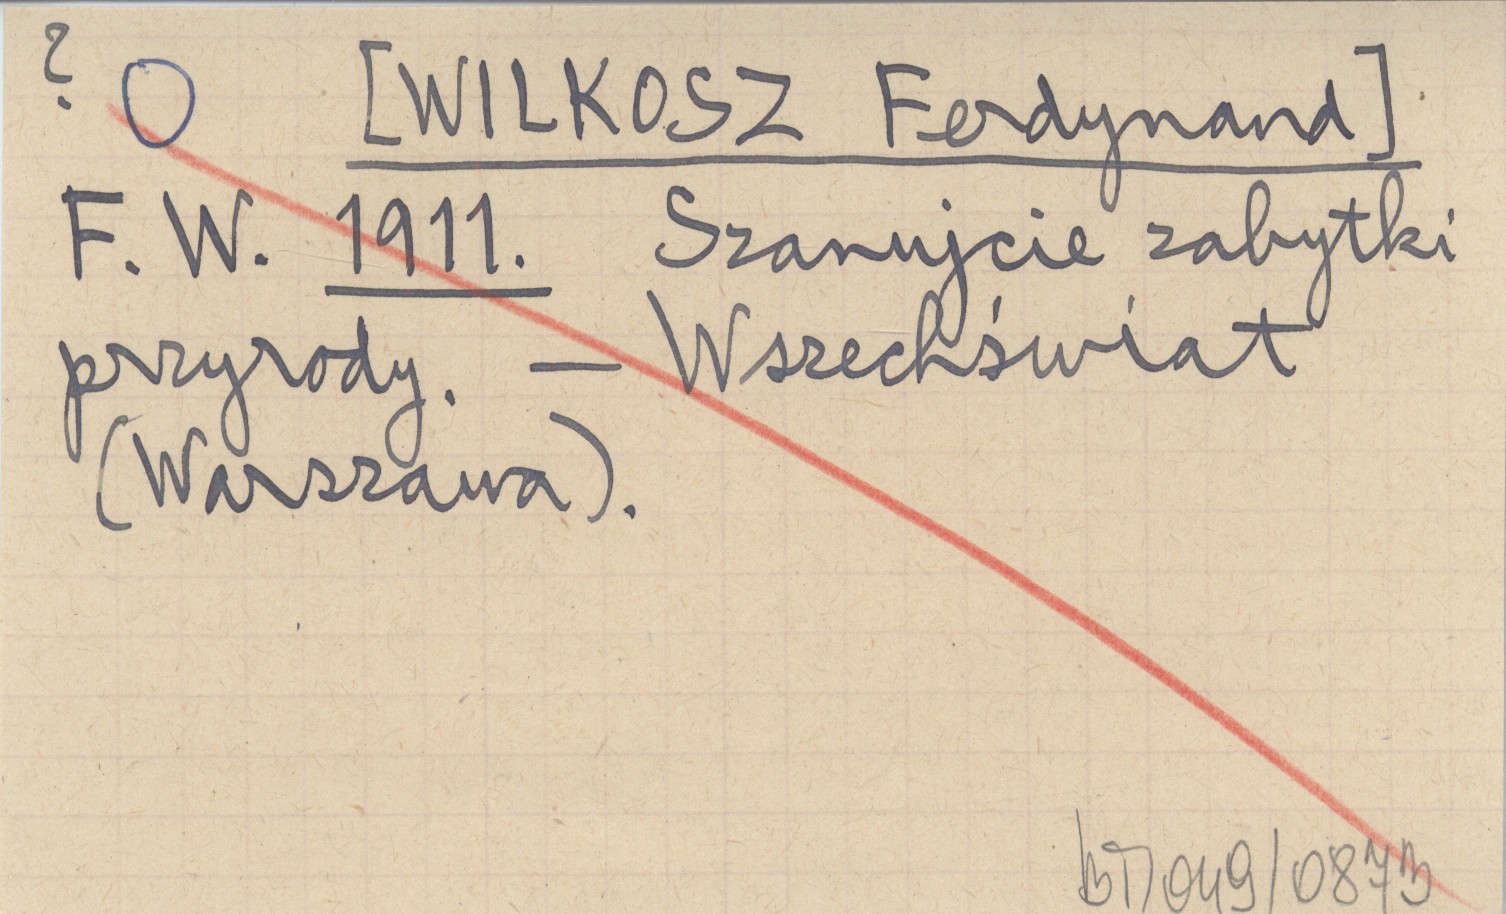 ? O [WILKOSZ Ferdynand]
F. W. 1911. Szanujcie zabytki
przyrody. — Wszechświat
(Warszawa).
BT/049/0873